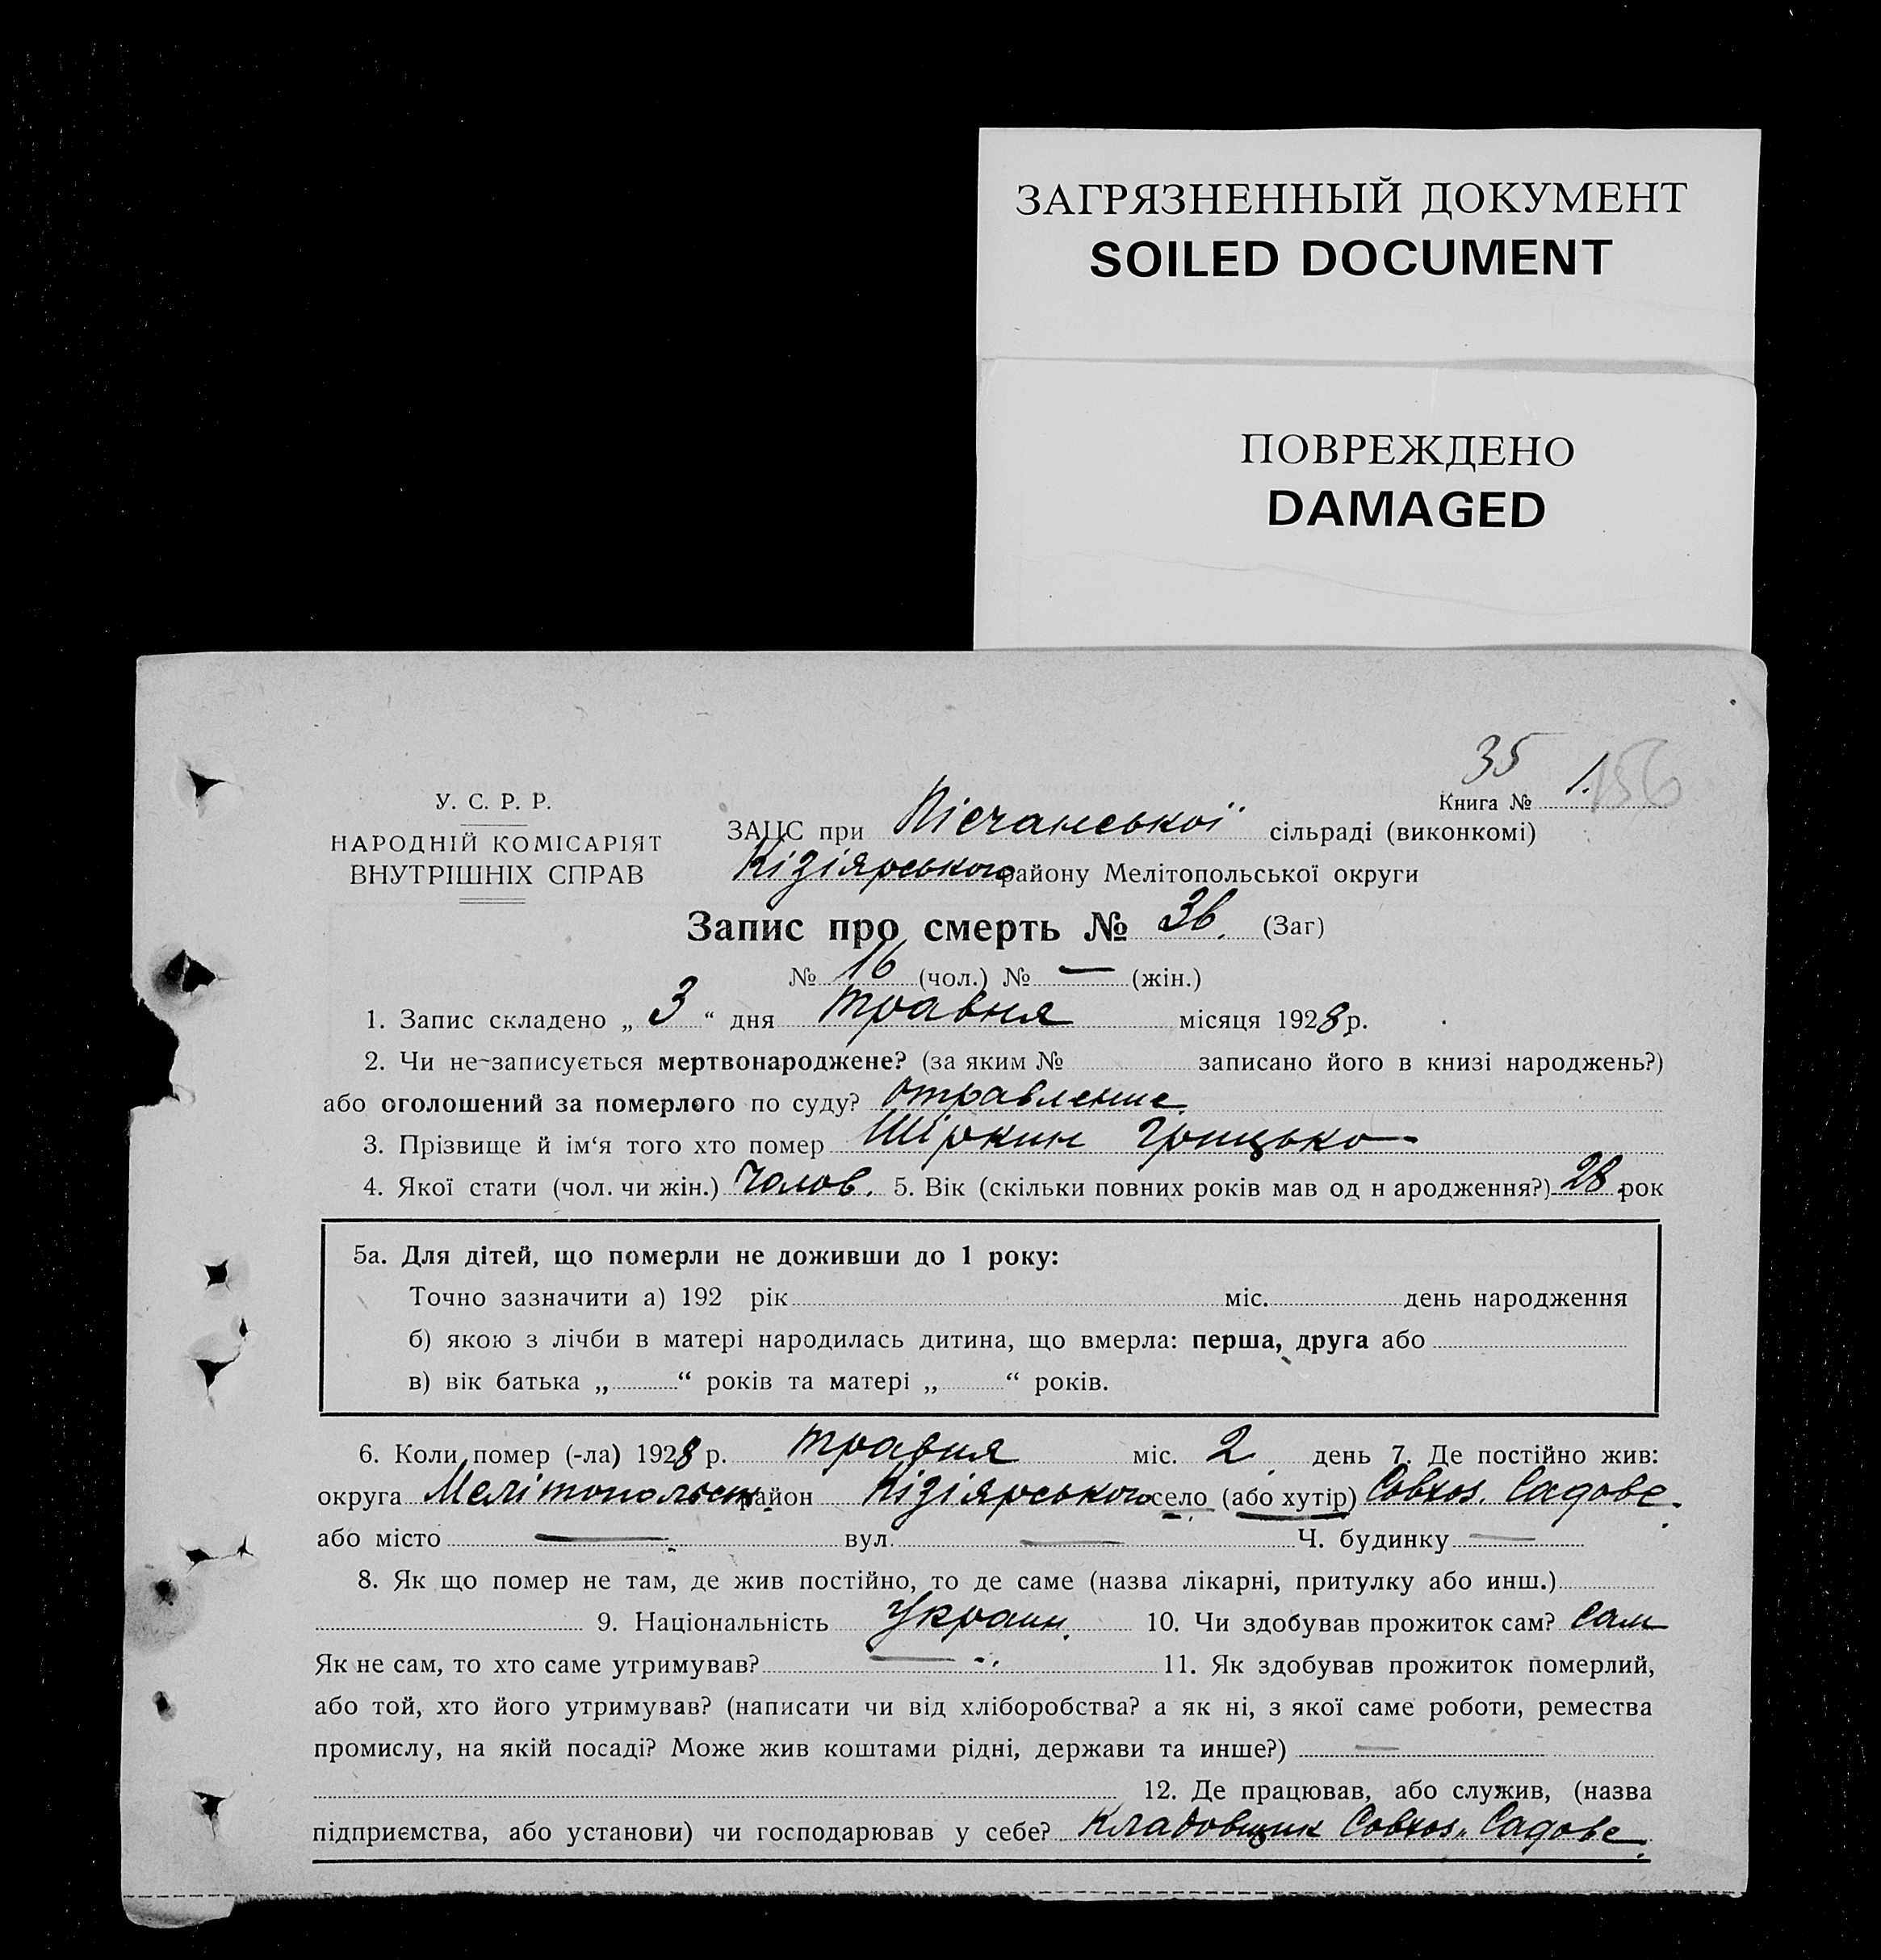 ЗАГРЯЗНЕННЫЙ ДОКУМЕНТ
SOILED DOCUMENT
ПОВРЕЖДЕНО
DAMAGED
35
156
Книга № 1.
У. С. Р. Р.
НАРОДНІЙ КОМІСАРІЯТ
ВНУТРІШНІХ СПРАВ
ЗАЦС при Пісчанської сільраді (виконкомі)
Кізіярського району Мелітопольської округи
Запис про смерть № 36. (Заг)
№ 16 (чол.) № — (жін.)
1. Запис складено „ 3 “ дня травня місяця 1928 р.
2. Чи не-записується мертвонароджене? (за яким № записано його в книзі народжень?)
або оголошений за померлого по суду? отравление.
3. Прізвище й ім‘я того хто помер Шіркин Грицько
4. Якої стати (чол. чи жін.) Чолов. 5. Вік (скільки повних років мав од н ародження?) 28 рок
5а. Для дітей, що померли не доживши до 1 року:
Точно зазначити а) 192 рік міс. день народження
б) якою з лічби в матері народилась дитина, що вмерла: перша, друга або
в) вік батька „ “ років та матері „ “ років.
6. Коли помер (-ла) 1928 р. травня міс. 2 день 7. Де постійно жив:
округа Мелітопольськ. район Кізіярського село (або хутір) Совхоз. Садове.
або місто — вул. — Ч. будинку —
8. Як що помер не там, де жив постійно, то де саме (назва лікарні, притулку або инш.)
9. Національність Украин. 10. Чи здобував прожиток сам? Сам
Як не сам, то хто саме утримував? — 11. Як здобував прожиток померлий,
або той, хто його утримував? (написати чи від хліборобства? а як ні, з якої саме роботи, ремества
промислу, на якій посаді? Може жив коштами рідні, держави та инше?) —
12. Де працював, або служив, (назва
підприємства, або установи) чи господарював у себе? Кладовщик Совхоз. Садове.